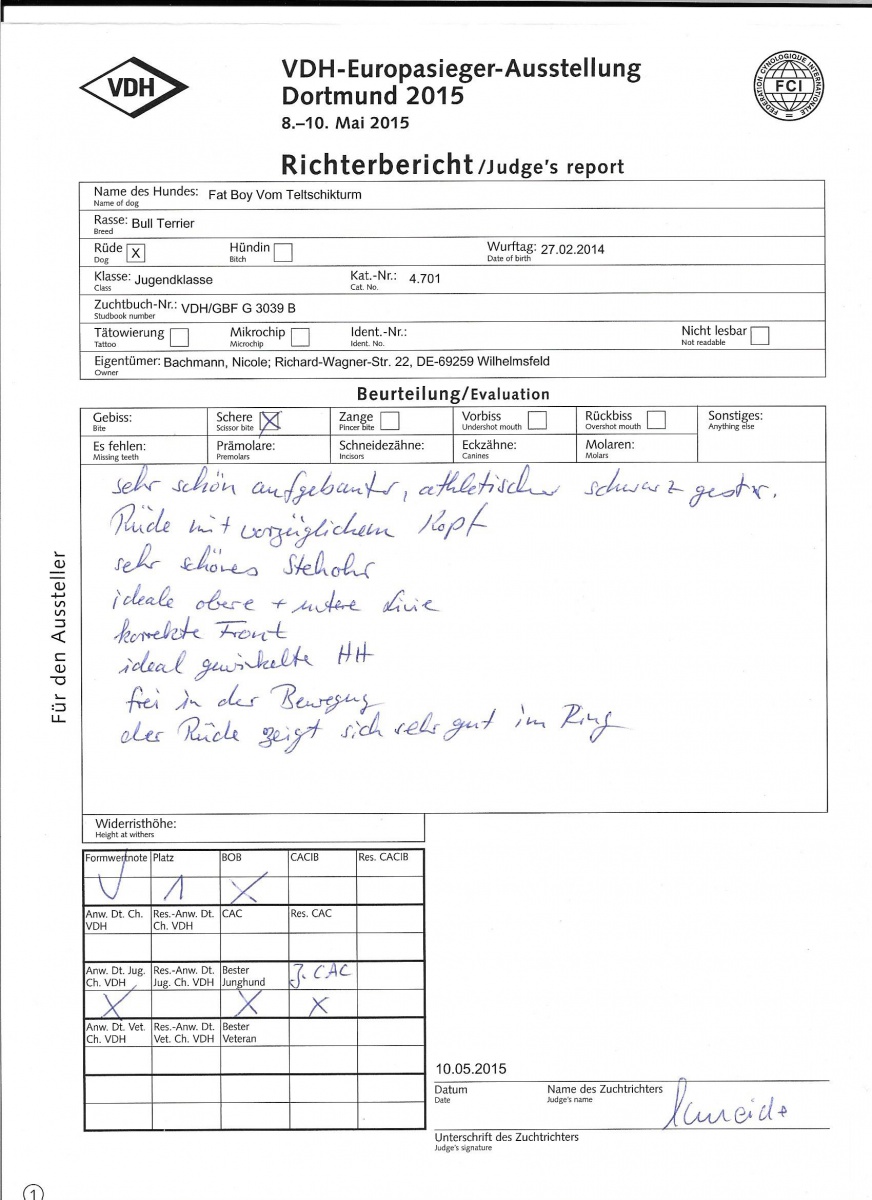 VDH
VDH-Europasieger-Ausstellung
Dortmund 2015
8.–10. Mai 2015
FEDERATION CYNOLOGIQUE INTERNATIONALE
FCI
Richterbericht /Judge's report
Name des Hundes: Fat Boy Vom Teltschikturm
Name of dog
Rasse: Bull Terrier
Breed
Rüde X Hündin Wurftag: 27.02.2014
Dog Bitch Date of birth
Klasse: Jugendklasse Kat.-Nr.: 4.701
Class Cat. No.
Zuchtbuch-Nr.: VDH/GBF G 3039 B
Studbook number
Tätowierung Mikrochip Ident.-Nr.: Nicht lesbar
Tattoo Microchip Ident. No. Not readable
Eigentümer: Bachmann, Nicole; Richard-Wagner-Str. 22, DE-69259 Wilhelmsfeld
Owner
Beurteilung/Evaluation
Gebiss: Schere X Zange Vorbiss Rückbiss Sonstiges:
Bite Scissor bite Pincer bite Undershot mouth Overshot mouth Anything else
Es fehlen: Prämolare: Schneidezähne: Eckzähne: Molaren:
Missing teeth Premolars Incisors Canines Molars
Für den Aussteller
sehr schön aufgebauter, athletischer schwarz gestr.
Rüde mit vorzüglichem Kopf
sehr schönes Stehohr
ideale obere + untere Linie
korrekte Front
ideal gewinkelte HH
frei in der Bewegung
der Rüde zeigt sich sehr gut im Ring
Widerristhöhe:
Height at withers
Formwertnote Platz BOB CACIB Res. CACIB
V 1 X
Anw. Dt. Ch. VDH Res.-Anw. Dt. Ch. VDH CAC Res. CAC
Anw. Dt. Jug. Ch. VDH Res.-Anw. Dt. Jug. Ch. VDH Bester Junghund J. CAC
X X X
Anw. Dt. Vet. Ch. VDH Res.-Anw. Dt. Vet. Ch. VDH Bester Veteran
10.05.2015
Datum Name des Zuchtrichters
Date Judge's name
Unterschrift des Zuchtrichters
Judge's signature
1